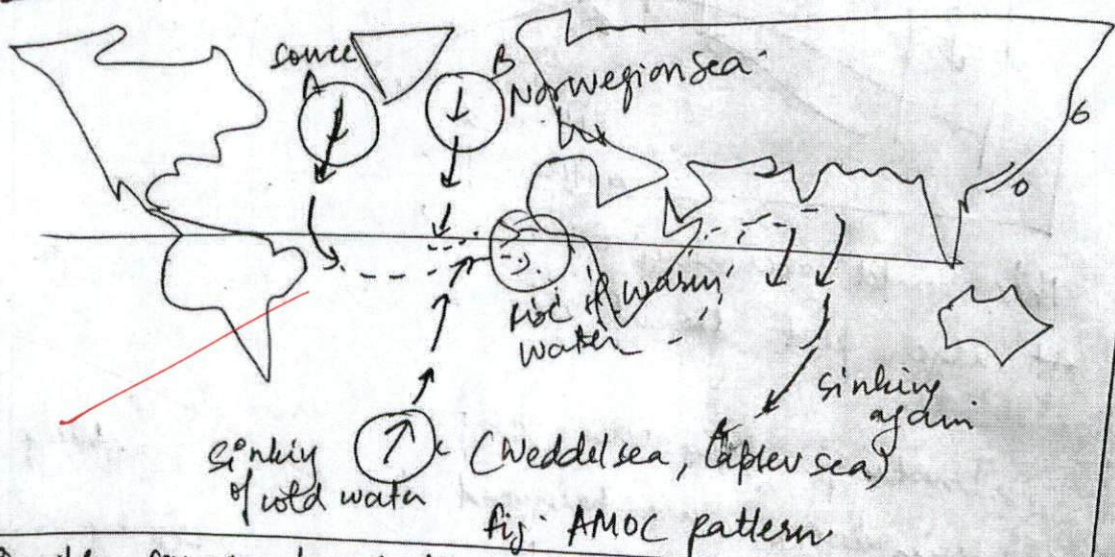 source
A
B
Norwegian sea
rise of warm
water
sinking
again
sinking
of cold water
(Weddel sea, Laptev sea)
fig: AMOC pattern